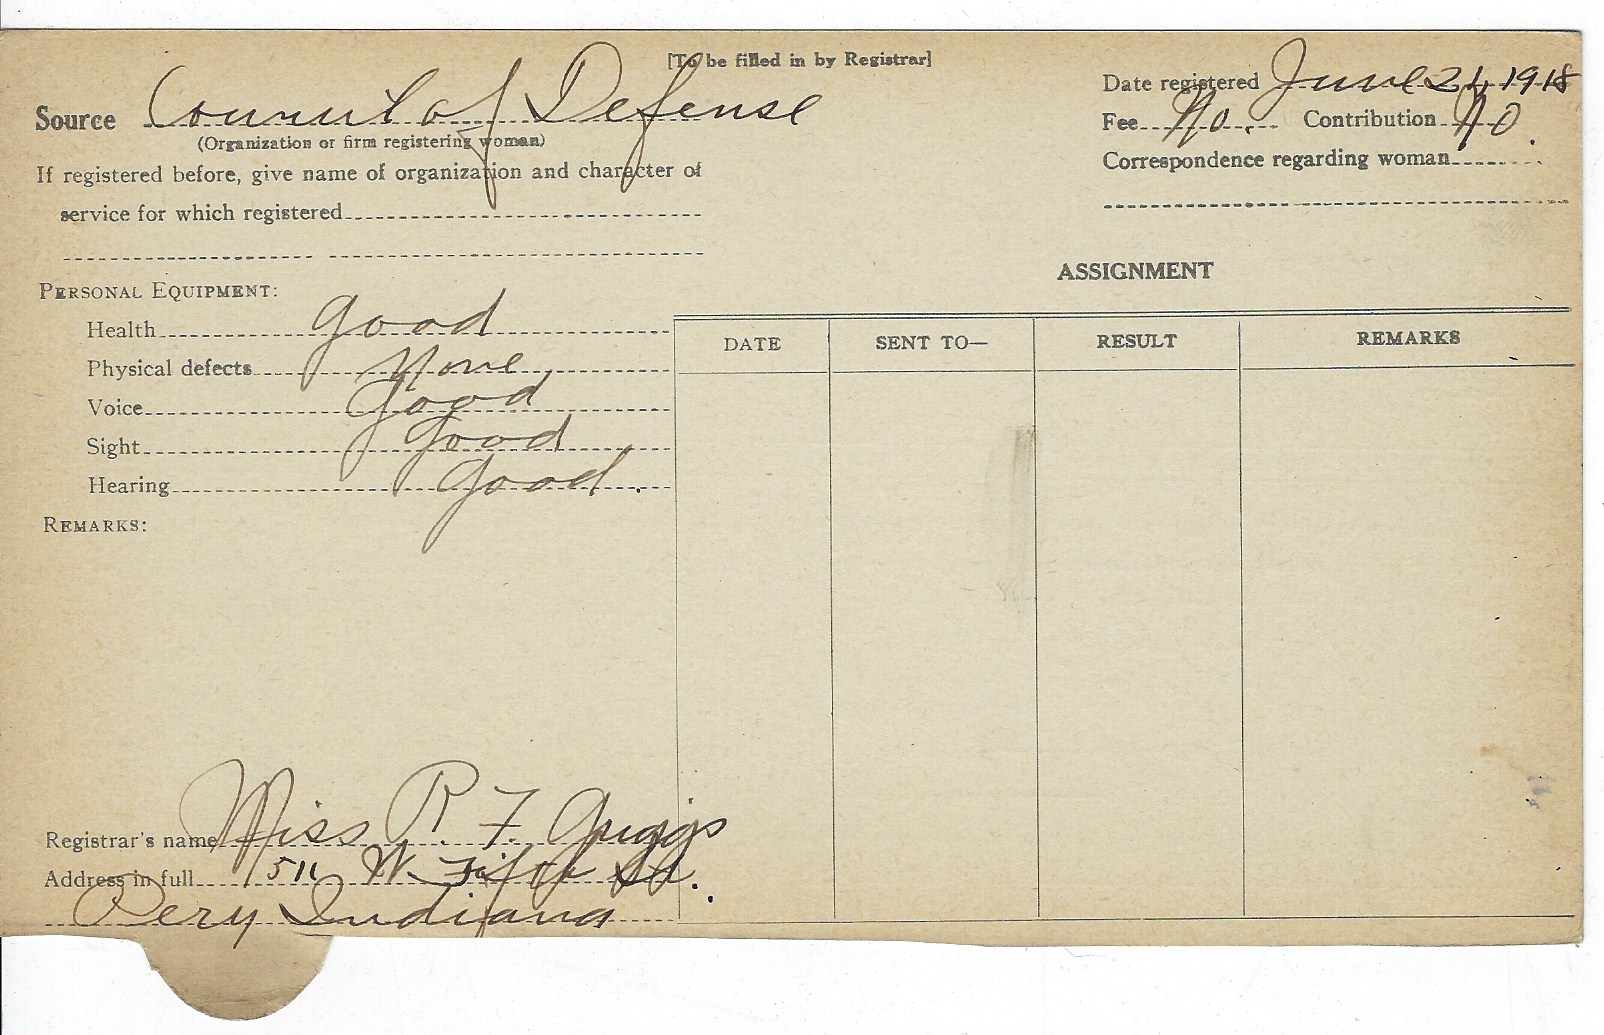 [To be filled in by Registrar]
Source Council of Defense
(Organization or firm registering woman)
If registered before, give name of organization and character of
service for which registered
Date registered June 24, 1918
Fee No. Contribution No.
Correspondence regarding woman
PERSONAL EQUIPMENT:
Health good
Physical defects None
Voice good
Sight good
Hearing good.
REMARKS:
ASSIGNMENT
DATE SENT TO— RESULT REMARKS
Registrar's name Miss R. F. Griggs
Address in full 511 W. Fifth St.
Pery Indiana